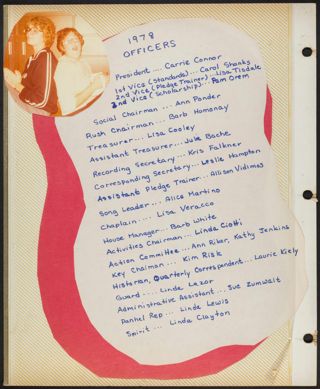 1978
OFFICERS
President .... Carrie Connor
1st Vice (Standards)... Carol Shanks
2nd Vice (Pledge Trainer).. Lisa Tisdale
3nd Vice (Scholarship)... Pam Orem
Social Chairman ... Ann Ponder
Rush Chairman... Barb Homonay
Treasurer... Lisa Cooley
Assistant Treasurer... Julie Bache
Recording Secretary... Kris Falkner
Corresponding Secretary... Leslie Hampton
Assistant Pledge Trainer... Allison Vidimos
Song Leader... Alice Martino
Chaplain.... Lisa Veracco
House Manager... Barb White
Activities Chairman... Linda Ciotti
Action Committee... Ann Riker, Kathy Jenkins
Key Chaiman... Kim Risk
Historian, Quarterly Correspondent... Laurie Kiely
Guard.... Linda Lezar
Administrative Assistant... Sue Zumwalt
Panhel Rep... Linda Lewis
Spirit... Linda Clayton